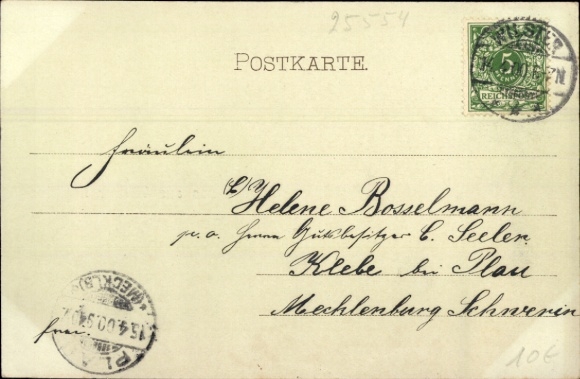 25554
POSTKARTE.
5
REICHSPOST
Fräulein
Helene Bosselmann
p. a. Herrn Gutsbesitzer C. Seeler
Klebe bei Plau
Mecklenburg Schwerin
frei.
(MECKLB)
15.4.00.
PLAU
10€